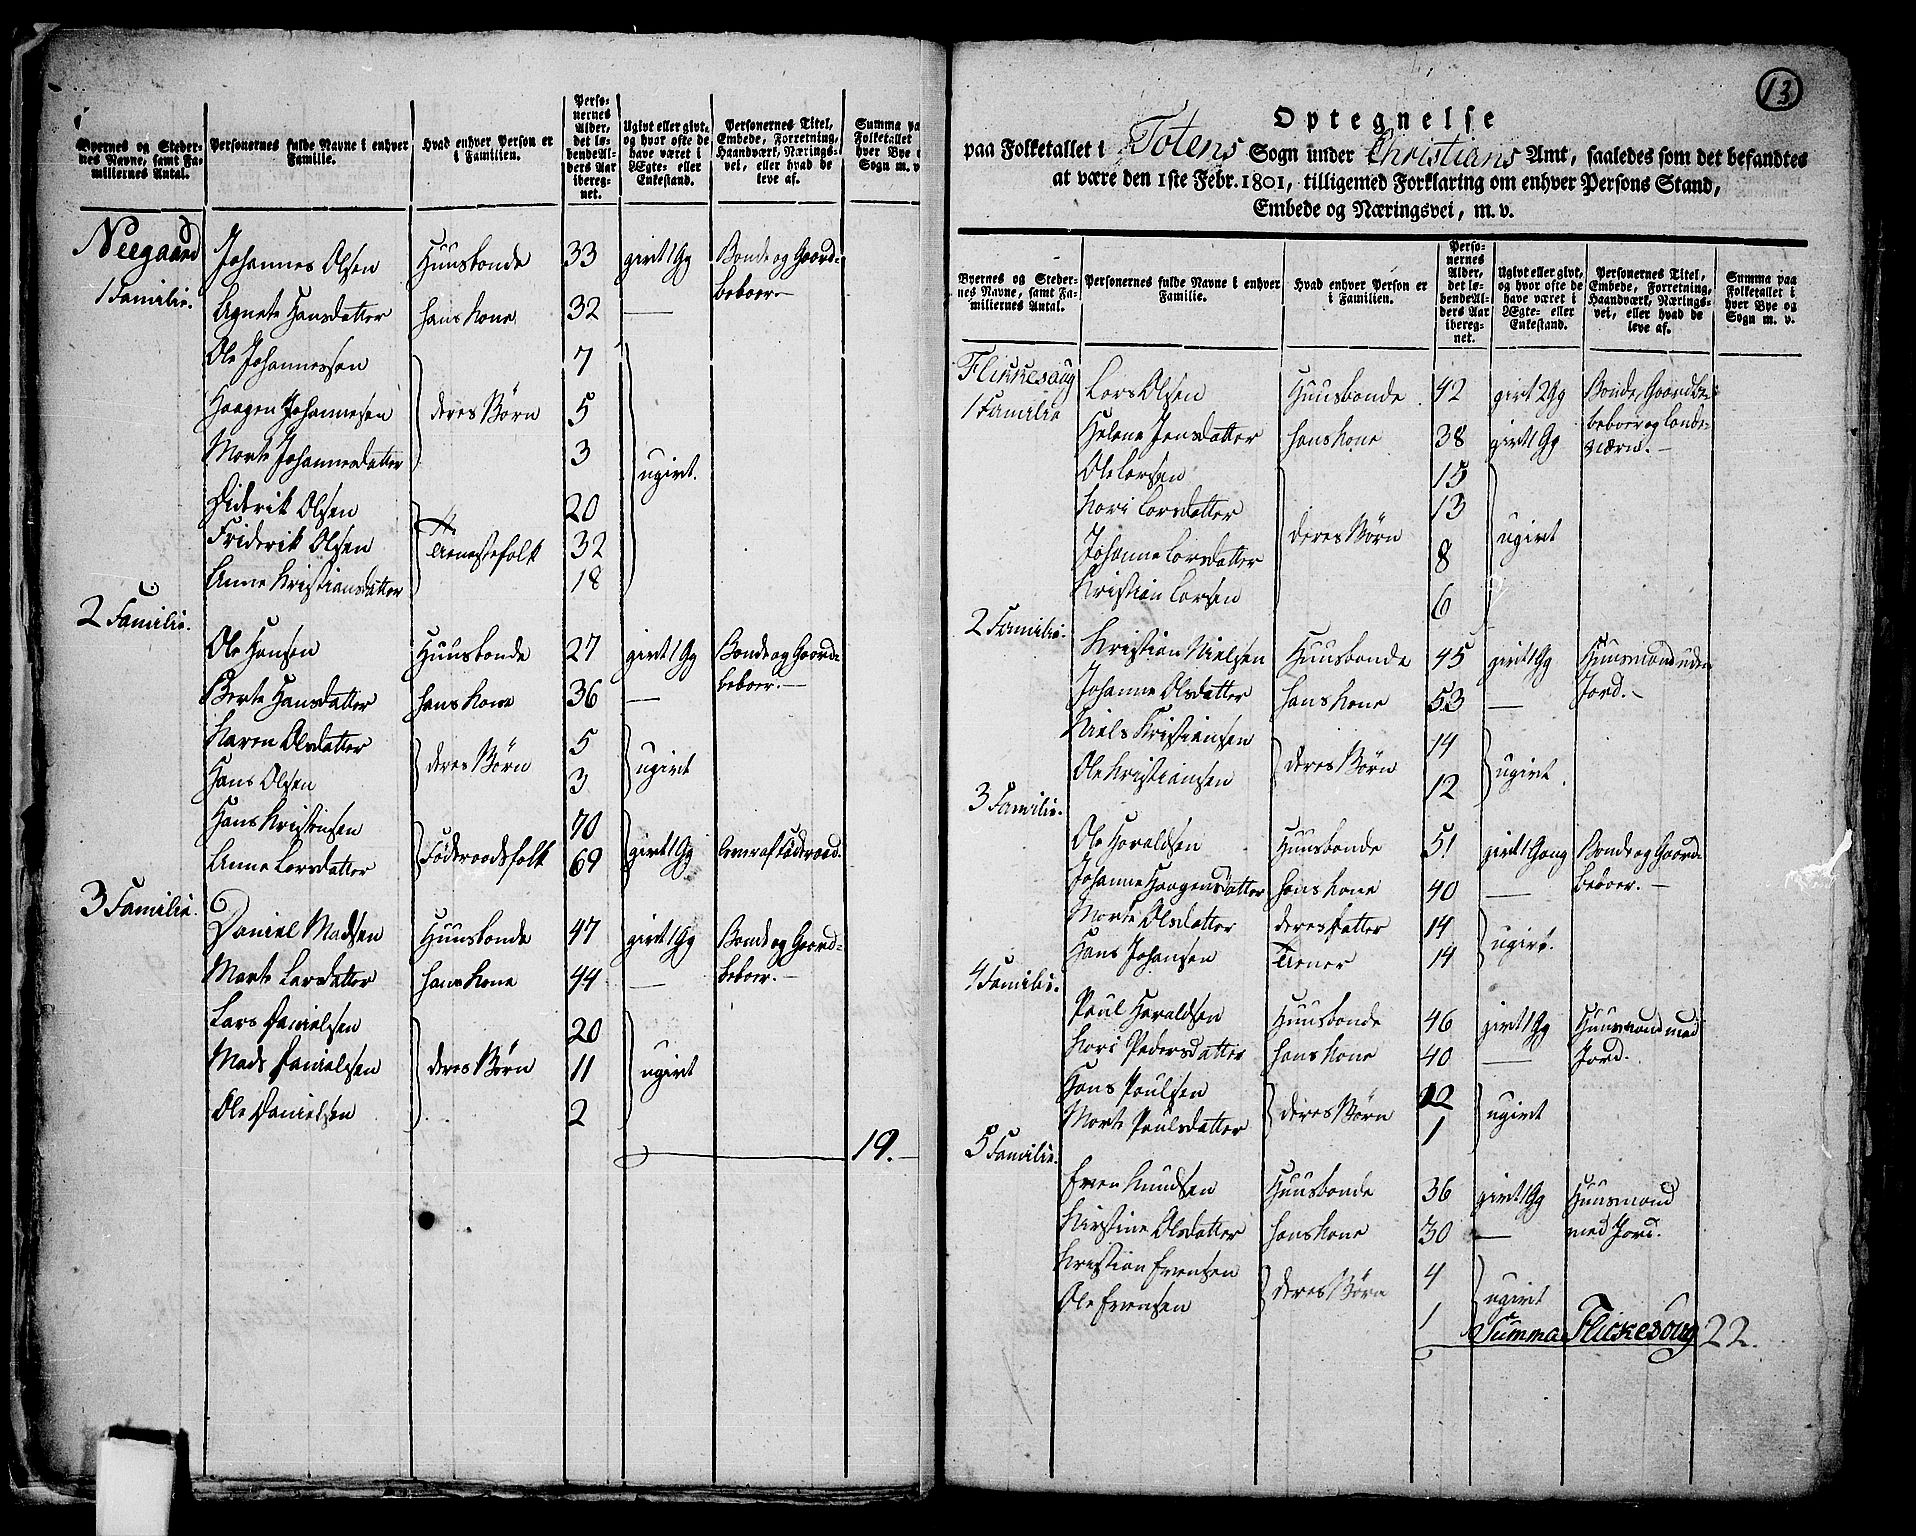 Byernes og Steder-
nes Navne, samt Fa-
miliernes Antal.
Personernes fulde Navne i enhver
Familie.
Hvad enhver Person er
i Familien.
Perso-
nernes
Alder,
det lø-
bende Al-
ders Aar
iberegn-
net.
Ugivt eller givt,
og hvor ofte de
have været i
Ægte- eller
Enkestand.
Personernes Titel,
Embede, Forretning,
Haandværk, Nærings-
vei, eller hvad de
leve af.
Summa pa
Folketallet
hver Bye o
Sogn m. v.
Neegaard
1 Familie.
Johannes Olsen Huusbonde 33 givt 1 Gg Bonde og Gaard-
beboer.
Agnete Hansdatter hans Kone 32 —
Ole Johannessen 7
Haagen Johannesen deres Børn 5
Marte Johannesdatter 3 ugivt.
Diderik Olsen 20
Friderik Olsen Tienestefolk 32
Anne Kristiansdatter 18
2 Familie.
Ole Hansen Huusbonde 27 givt 1 Gg Bonde og Gaard-
beboer.—
Berte Hansdatter hans Kone 36 —
Karen Olsdatter deres Børn 5 ugivt
Hans Olsen 3
Hans Kristensen 70
Anne Larsdatter Føderaadsfolk 69 givt 1 Gg lever af Føderaad.
3 Familie.
Daniel Madsen Huusbonde 47 givt 1 Gg Bonde og Gaard-
beboer.—
Marte Larsdatter hans Kone 44 —
Lars Danielsen 20
Mads Danielsen deres Børn 11 ugivt
Ole Danielsen 2
19.—
13
Optegnelse
paa Folketallet i Totens Sogn under Christians Amt, saaledes som det befandtes
at være den 1ste Febr. 1801, tilligemed Forklaring om enhver Persons Stand,
Embede og Næringsvei, m. v.
Byernes og Steder-
nes Navne, samt Fa-
miliernes Antal.
Personernes fulde Navne i enhver
Familie.
Hvad enhver Person er
i Familien.
Perso-
nernes
Alder,
det lø-
bende Al-
ders Aar
iberegn-
net.
Ugivt eller givt,
og hvor ofte de
have været i
Ægte- eller
Enkestand.
Personernes Titel,
Embede, Forretning,
Haandværk, Nærings-
vei, eller hvad de
leve af.
Summa paa
Folketallet i
hver Bye og
Sogn m. v.
Flikkesoug
1 Familie
Lars Olsen Huusbonde 42 givt 2 Gg Bonde, Gaardbe-
beboer og Lande-
værn.—
Helene Jensdatter hans Kone 38 givt 1 Gg
Ole Larsen 15
Kari Larsdatter 13
Johanne Larsdatter deres Børn 8 ugivt
Kristian Larsen 6
2 Familie.
Kristian Nielsen Huusbonde 45 givt 1 Gg Huusmand uden
Jord.—
Johanne Olsdatter hans Kone 53 —
Niels Kristiansen deres Børn 14 ugivt.
Ole Kristiansen 12
3 Familie.
Ole Haraldsen Huusbonde 51 givt 1 Gang Bonde og Gaard-
beboer.—
Johanne Haagensdatter hans Kone 40 —
Marte Olsdatter deres datter 14 ugivt.
Hans Johansen Tiener 14
4 Familie.
Paul Haraldsen Huusbonde 46 givt 1 Gg Huusmand med
Jord.
Kari Pedersdatter hans Kone 40 —
Hans Paulsen deres Børn 12 ugivt
Marte Paulsdatter 1
5 Familie.
Even Knudsen Huusbonde 36 givt 1 Gg Huusmand
med Jord.
Kirstine Olsdatter hans Kone 30 —
Kristian Evensen deres Børn 4 ugivt
Ole Evensen 1
Summa Flickesoug 22.